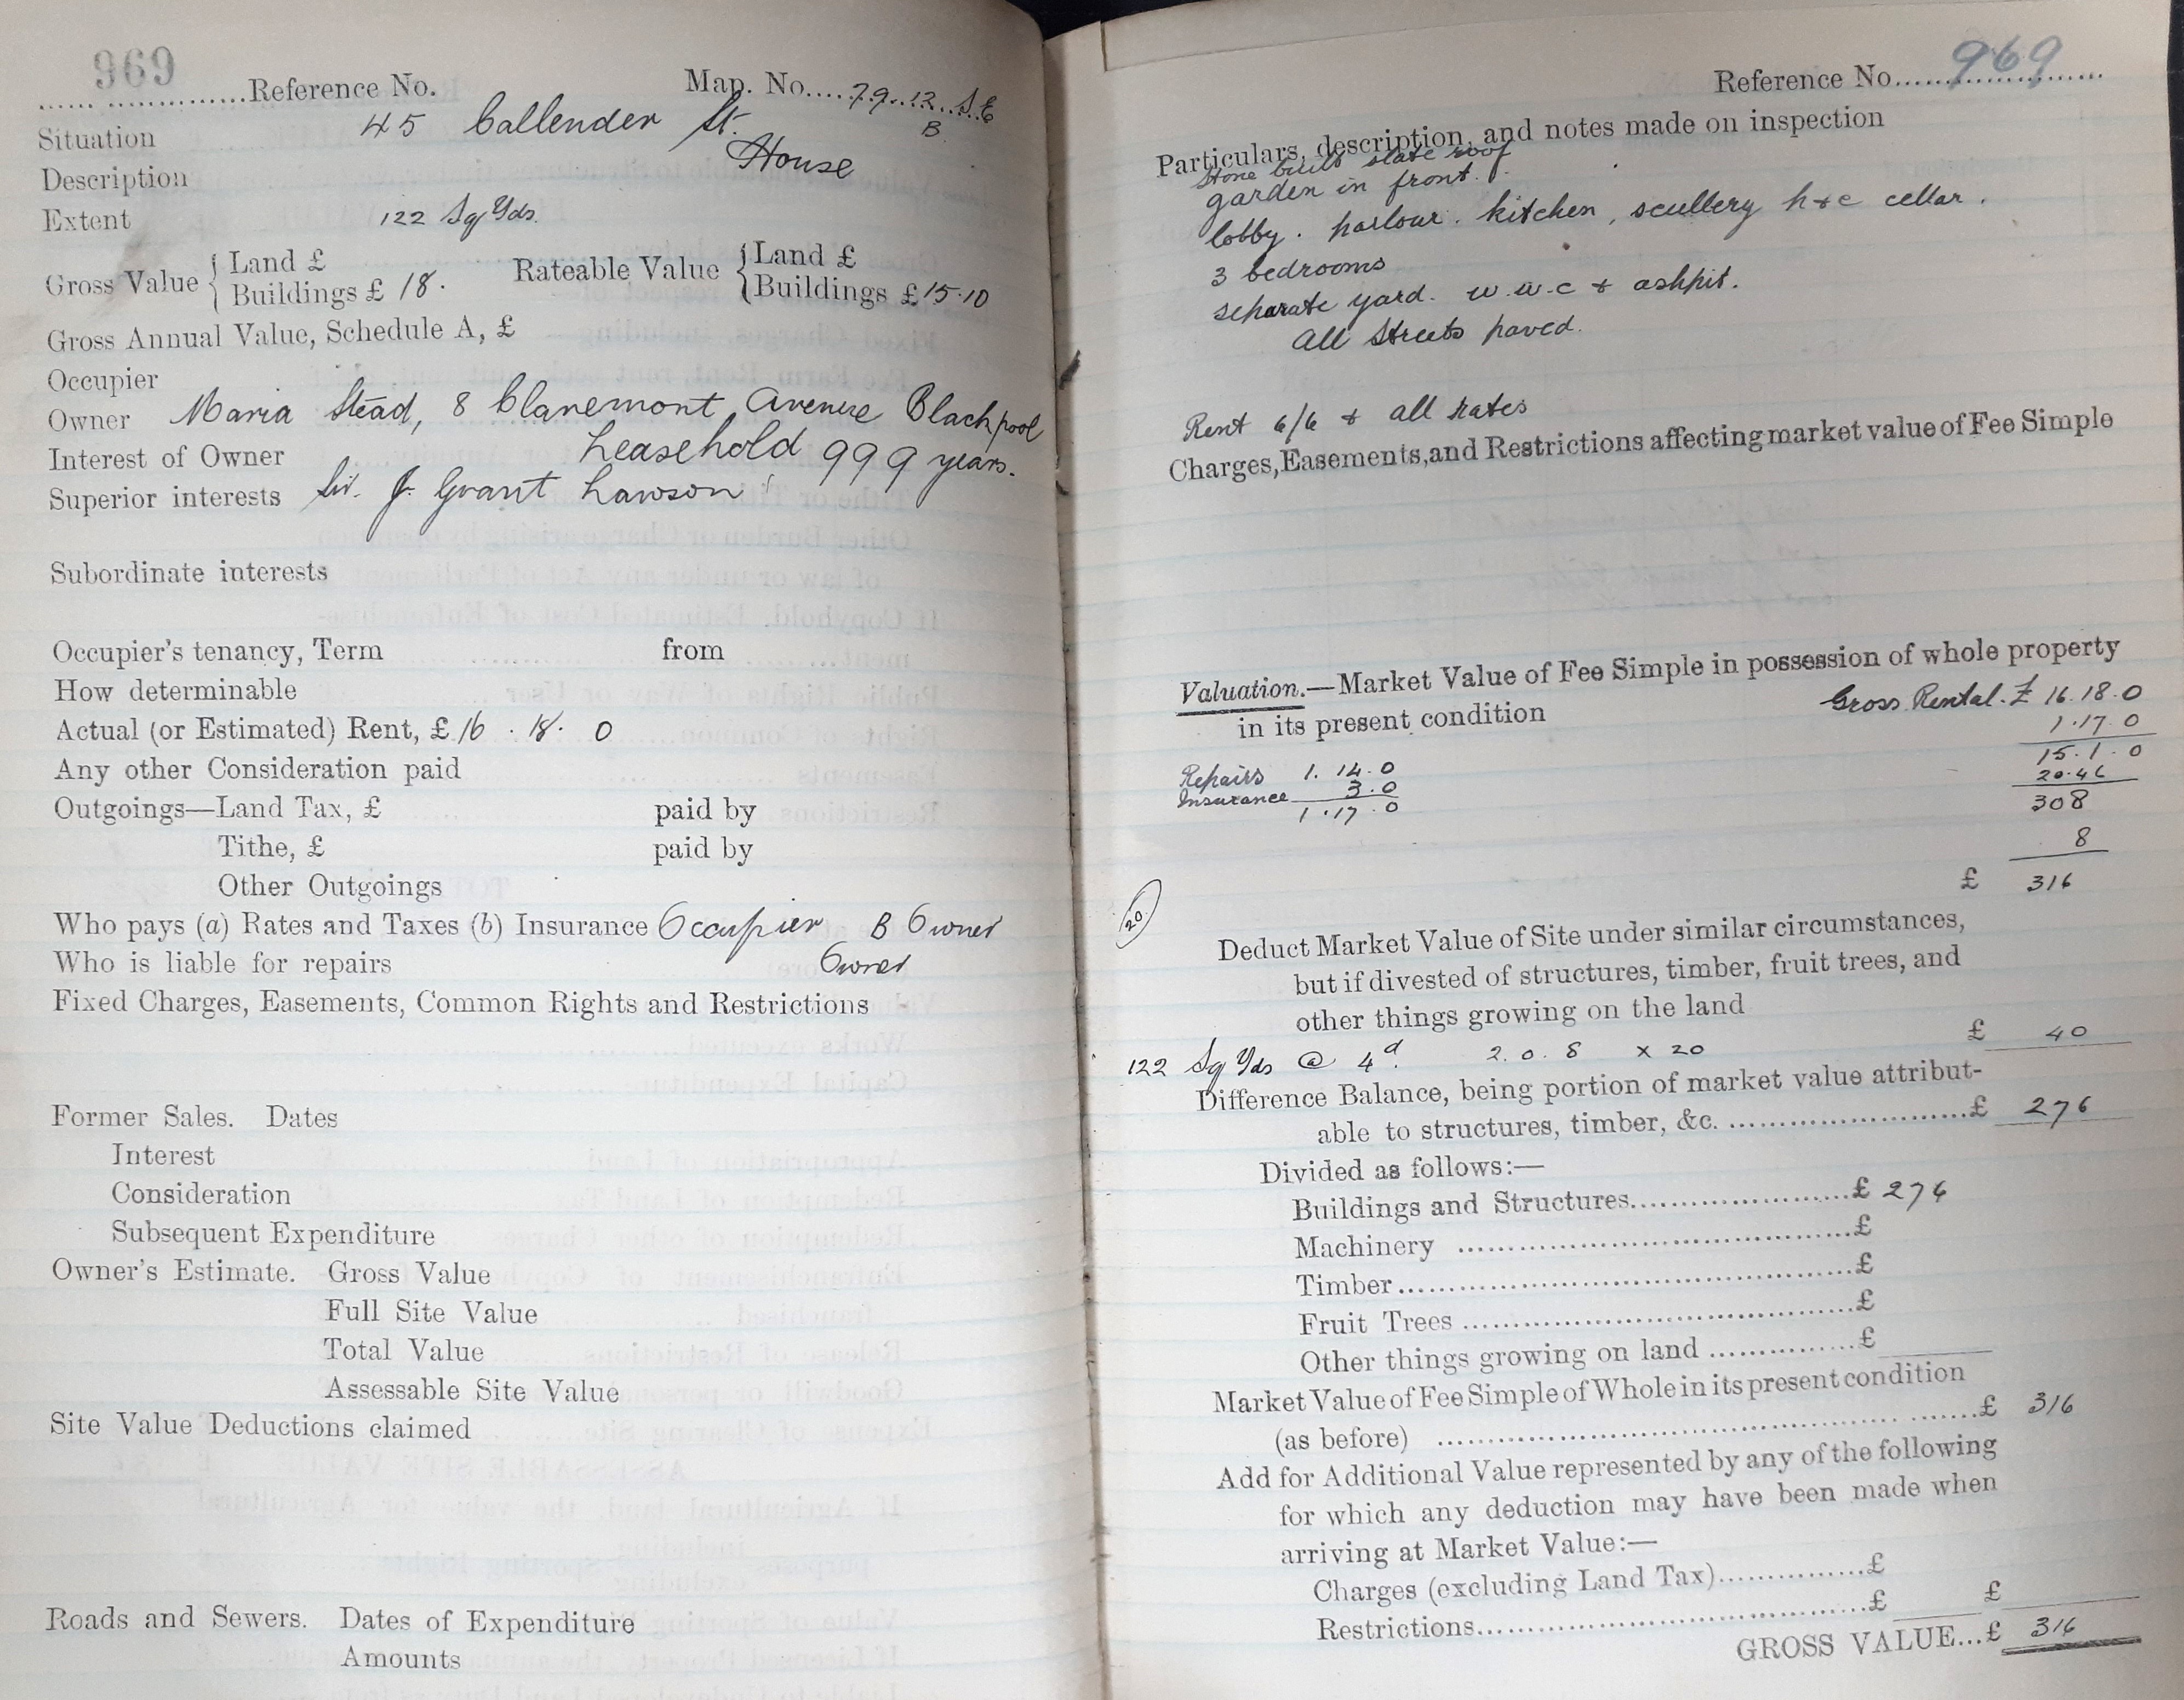 969
...... ..............Reference No. Map. No....79..12...S.E
B
Situation 45 Callender St.
Description House
Extent 122 Sq Yds.
Gross Value { Land £ Rateable Value { Land £
Buildings £ 18. Buildings £15.10
Gross Annual Value, Schedule A, £
Occupier
Owner Maria Stead, 8 Claremont Avenue Blackpool
Interest of Owner Leasehold 999 years.
Superior interests Sir. J. Grant Lawson
Subordinate interests
Occupier's tenancy, Term from
How determinable
Actual (or Estimated) Rent, £ 16 . 18. 0
Any other Consideration paid
Outgoings—Land Tax, £ paid by
Tithe, £ paid by
Other Outgoings
Who pays (a) Rates and Taxes (b) Insurance Occupier B Owner
Who is liable for repairs Owner
Fixed Charges, Easements, Common Rights and Restrictions
Former Sales. Dates
Interest
Consideration
Subsequent Expenditure
Owner's Estimate. Gross Value
Full Site Value
Total Value
Assessable Site Value
Site Value Deductions claimed
Roads and Sewers. Dates of Expenditure
Amounts
Reference No....969....
Particulars, description, and notes made on inspection
Stone built slate roof
garden in front.
lobby. parlour. kitchen, scullery h & c cellar.
3 bedrooms
separate yard. w.w.c & ashpit.
All Streets paved.
Rent 6/6 & all rates
Charges, Easements, and Restrictions affecting market value of Fee Simple
Valuation.—Market Value of Fee Simple in possession of whole property
in its present condition Gross Rental. £ 16.18.0
1.17.0
15.1.0
Repairs 1.14.0 20.46
Insurance 3.0 308
1.17.0
8
£ 316
20
Deduct Market Value of Site under similar circumstances,
but if divested of structures, timber, fruit trees, and
other things growing on the land
£ 40
122 Sq Yds @ 4d. 2.0.8 x 20
Difference Balance, being portion of market value attribut-
able to structures, timber, &c. ........................£ 276
Divided as follows:—
Buildings and Structures........................£ 276
Machinery ........................£
Timber........................£
Fruit Trees ........................£
Other things growing on land ................£
Market Value of Fee Simple of Whole in its present condition
(as before) ........................£ 316
Add for Additional Value represented by any of the following
for which any deduction may have been made when
arriving at Market Value:—
Charges (excluding Land Tax)................£
Restrictions........................£ £
GROSS VALUE...£ 316